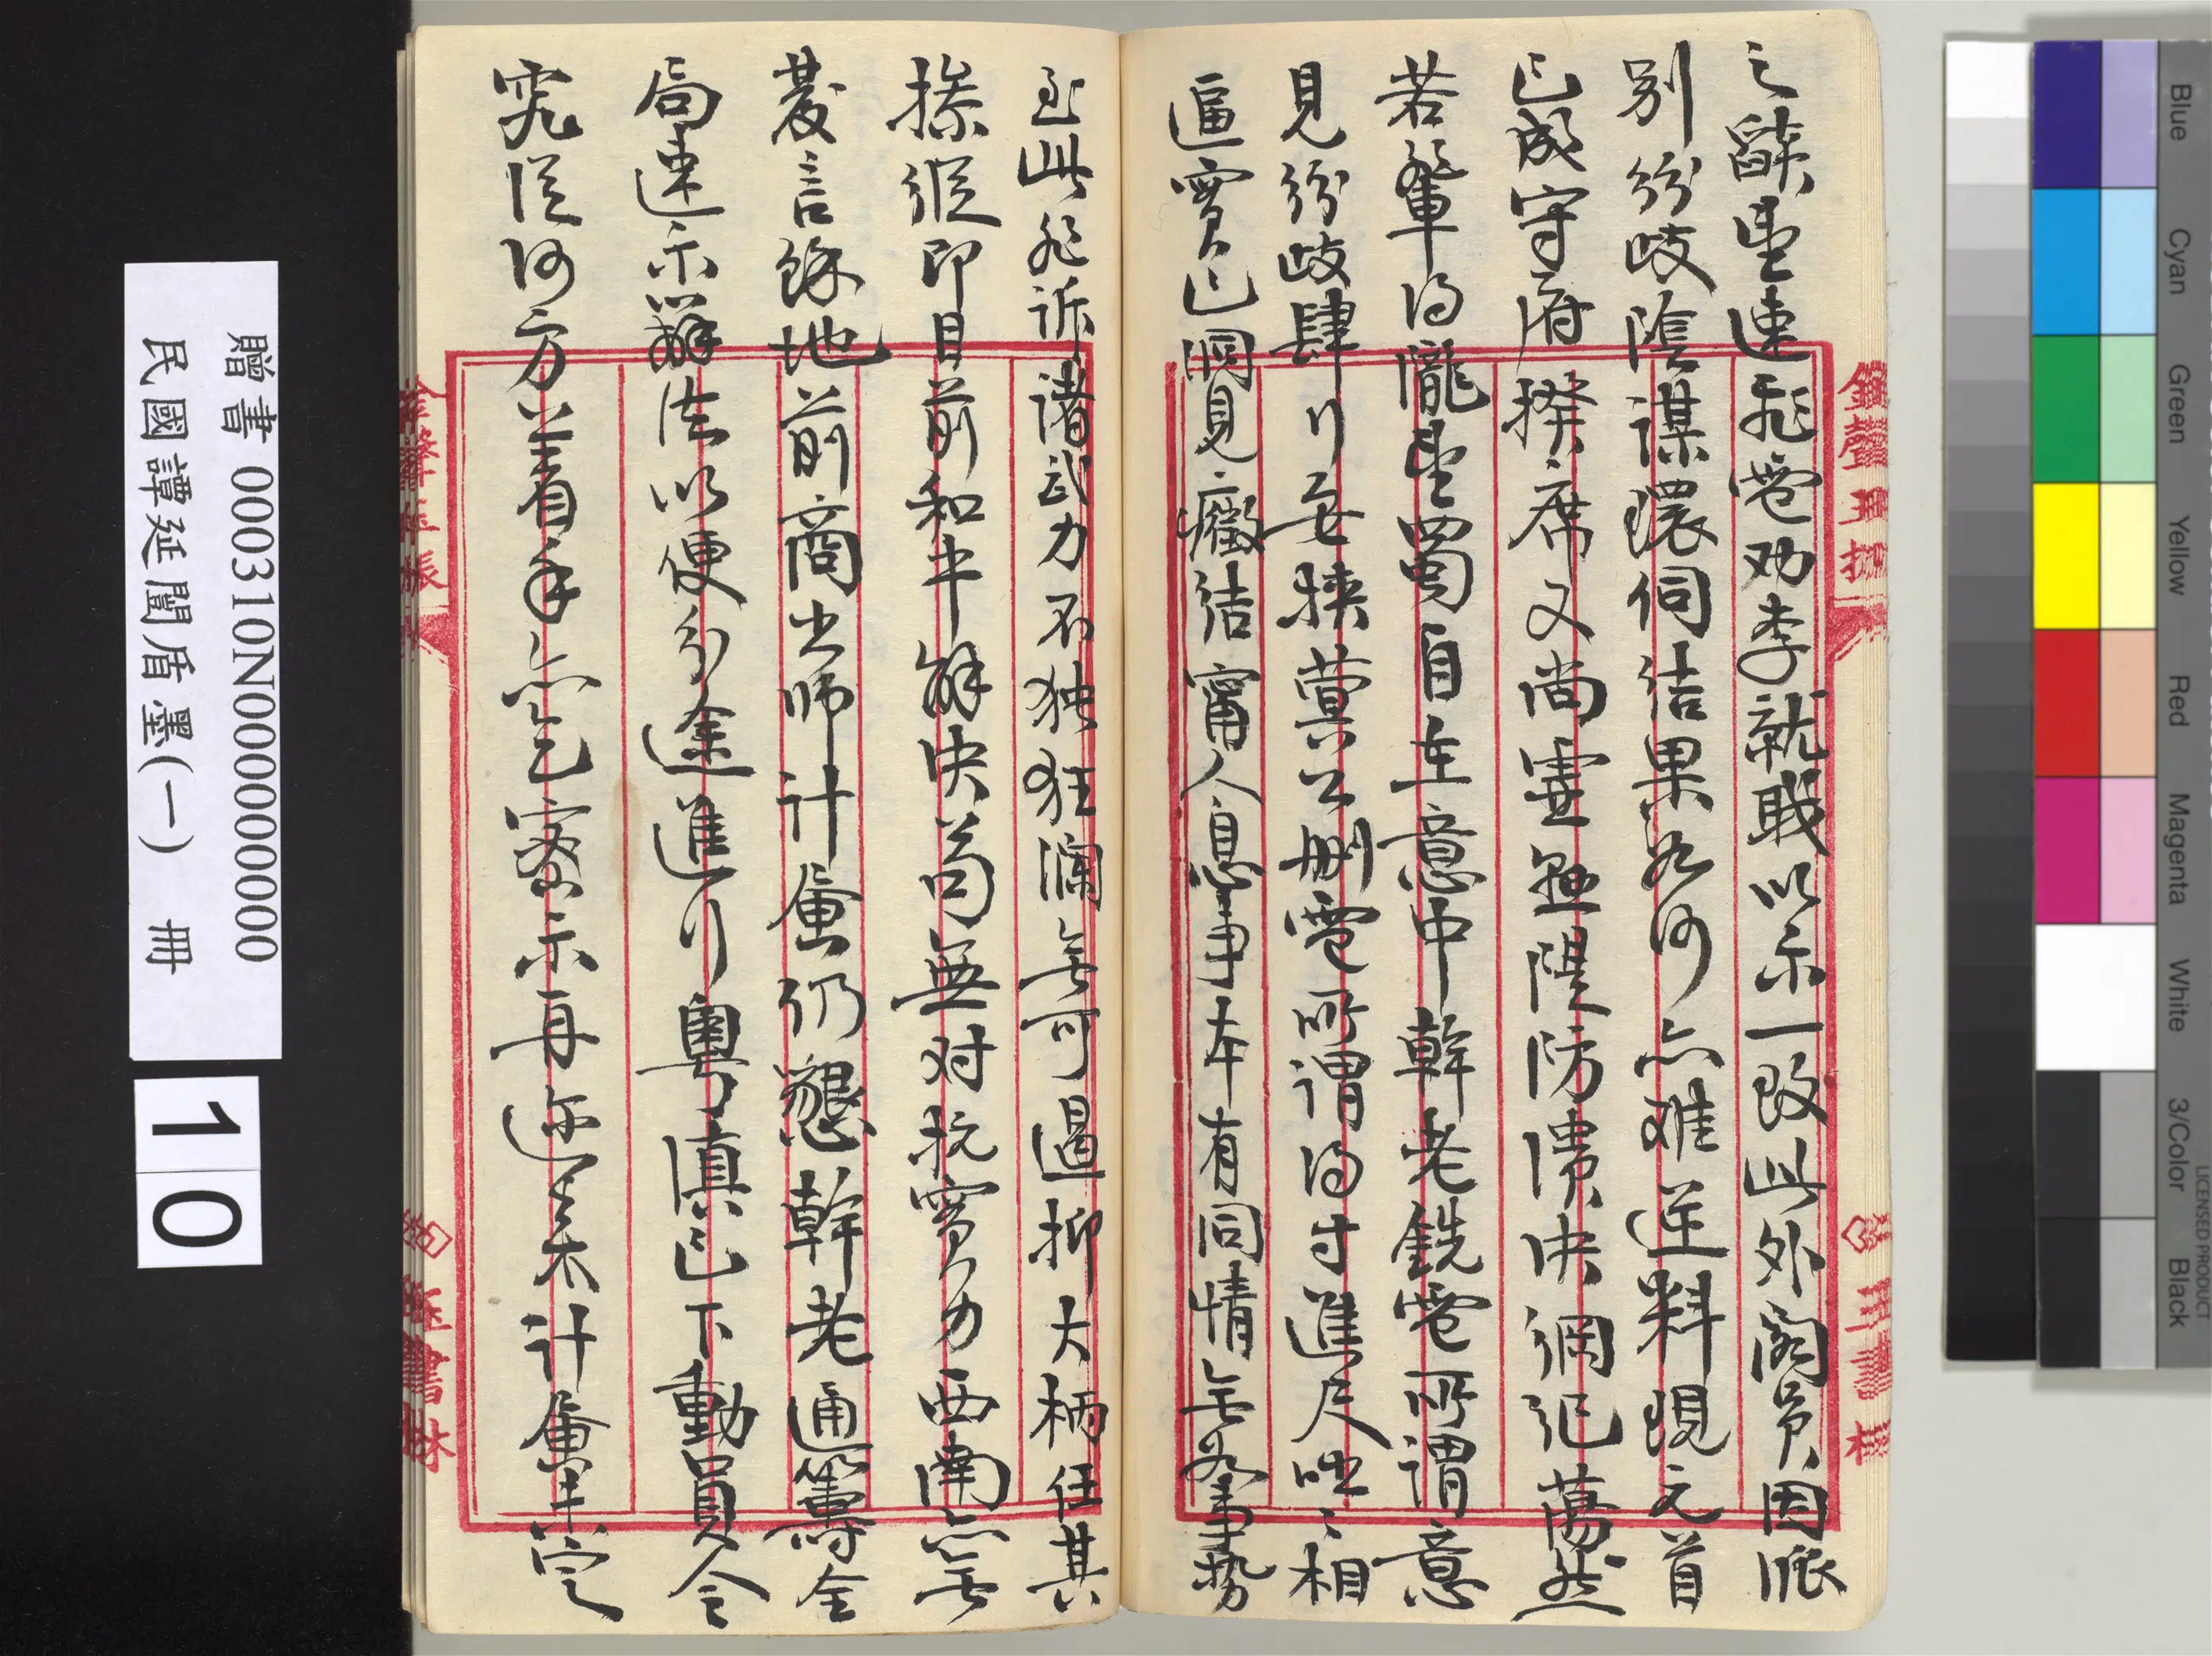 之辭堂速電勸李就職以示一致此外閣員因派
別紛歧陰謀環伺結果如何亦難逆料現元首
已成守府揆席又尚虛懸隄防潰決綱紀蕩然
若輩得隴望蜀自在意中幹老銑電所謂意
見紛歧肆行要挾蓂公刪電所謂得寸進尺咄咄相
逼實已洞見癥結甯人息事本有同情無奈事勢
至此非訴諸武力不独狂瀾無可遏抑大柄任其
操縱即目前和平解決苟無对抗實力西南亦無
發言餘地前商出師計畫仍懇幹老通籌全
局速示辦法以便分途進行粵滇已下動員令
究從何方着手亦乞密示再迩来計畫未定
贈書 000310N000000000000
民國譚延闓盾墨(一) 冊
10
Blue
Cyan
Green
Yellow
Red
Magenta
White
3/Color
Black
LICENSED PRODUCT